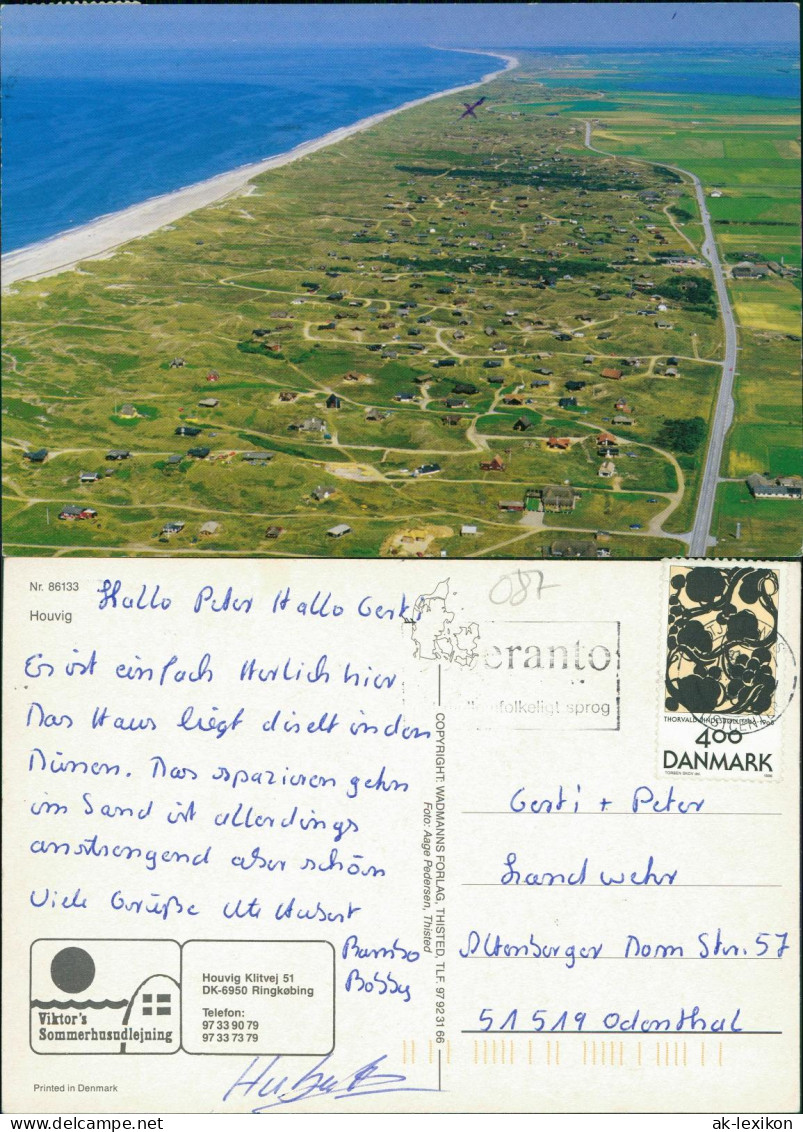 Nr. 86133
Houvig
Hallo Peter Hallo Gerti
Es ist einfach Herlich hier.
Das Haus liegt direkt in den
Dünen. Das spazieren gehn
im Sand ist allerdings
anstrengend aber schön
Viele Grüße Ute Hubert
Bambo
Bobby
Hubert
Viktor's
Sommerhusudlejning
Houvig Klitvej 51
DK-6950 Ringkøbing
Telefon:
97 33 90 79
97 33 73 79
Printed in Denmark
COPYRIGHT: WADMANNS FORLAG, THISTED, TLF. 97 92 31 66
Foto: Aage Pedersen, Thisted
087
eranto
folkeligt sprog
THORVALD BINDESBØLL 1846-1908
4.00
DANMARK
1996
Gerti + Peter
Landwehr
Altenberger Dom Str. 57
51519 Odenthal
ak-lexikon.com